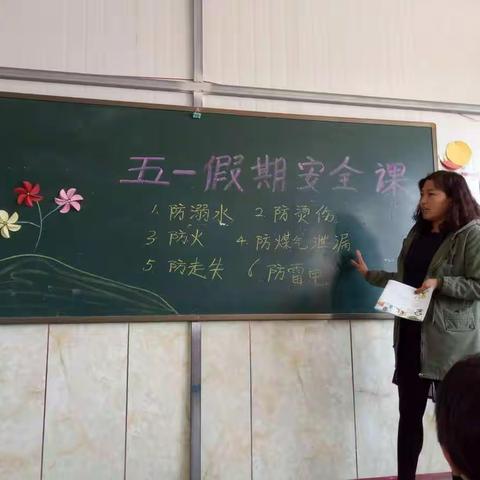 五一假期安全课
1. 防溺水 2 防烫伤
3 防火 4. 防煤气泄漏
5 防走失 6 防雷电